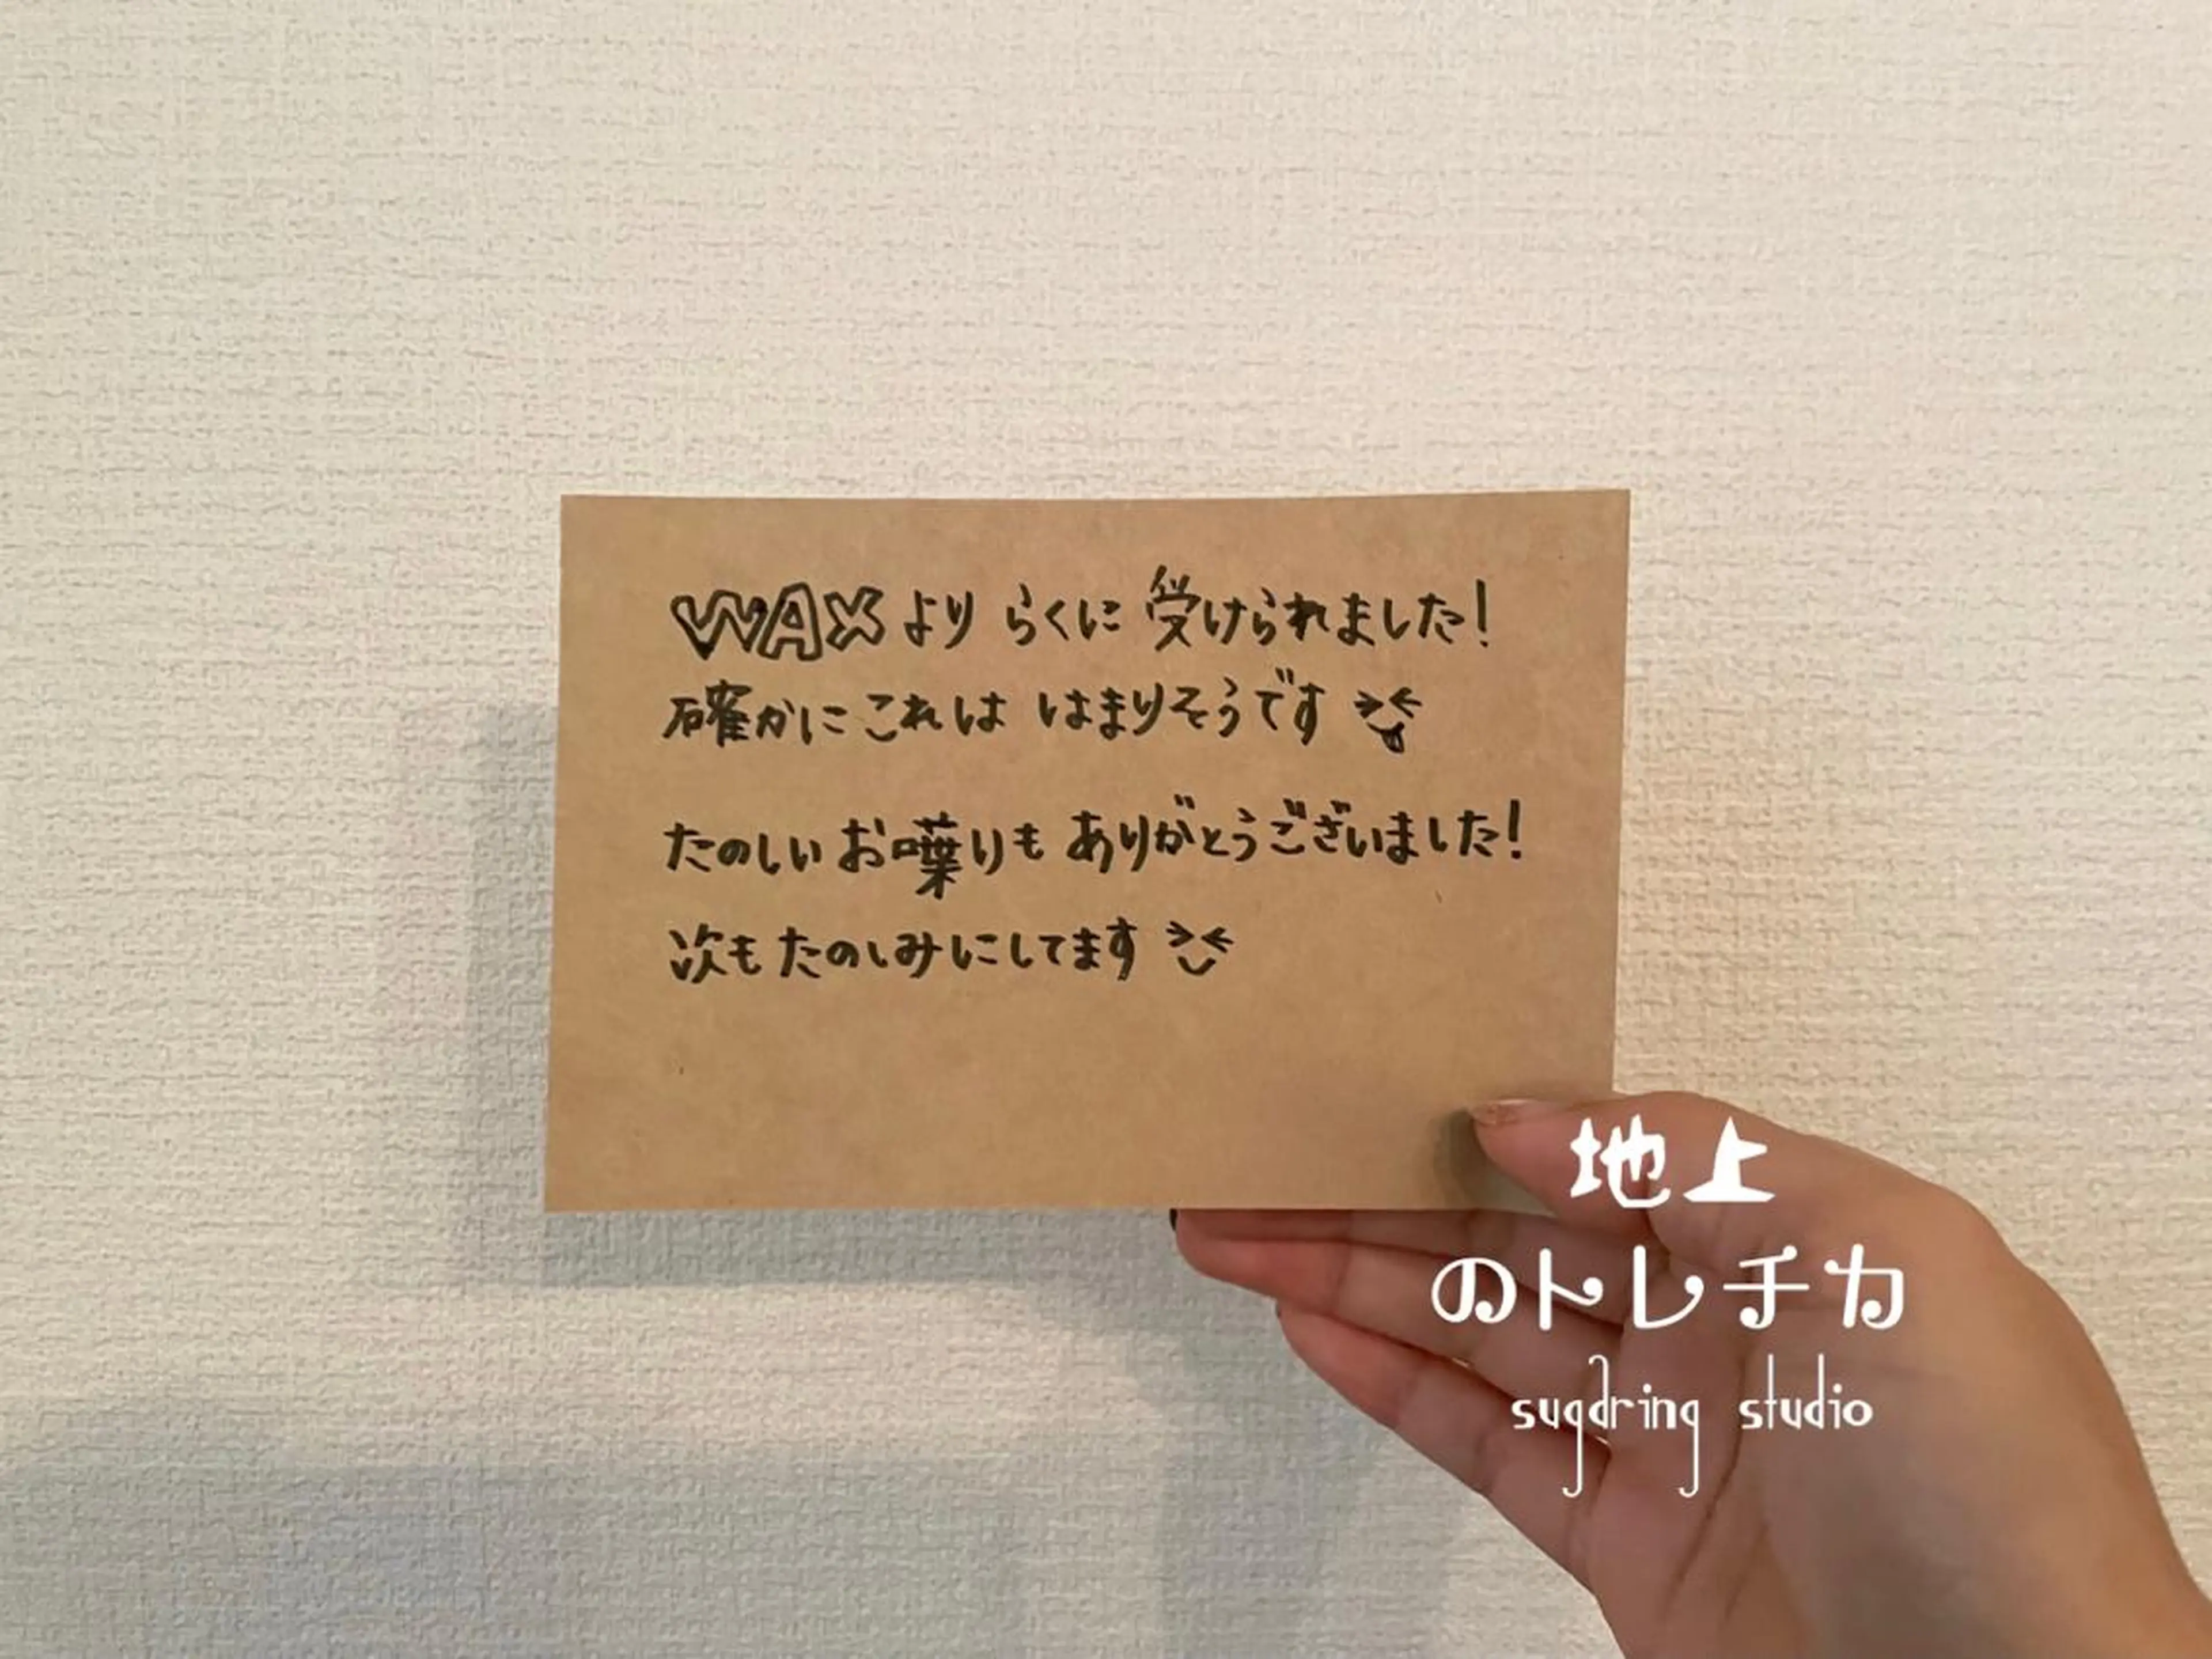 WAXより らくに 受けられました!
確かにこれは はまりそうです
たのしいお喋りも ありがとうございました!
次もたのしみにしてます
地上
のトレチカ
sugaring studio